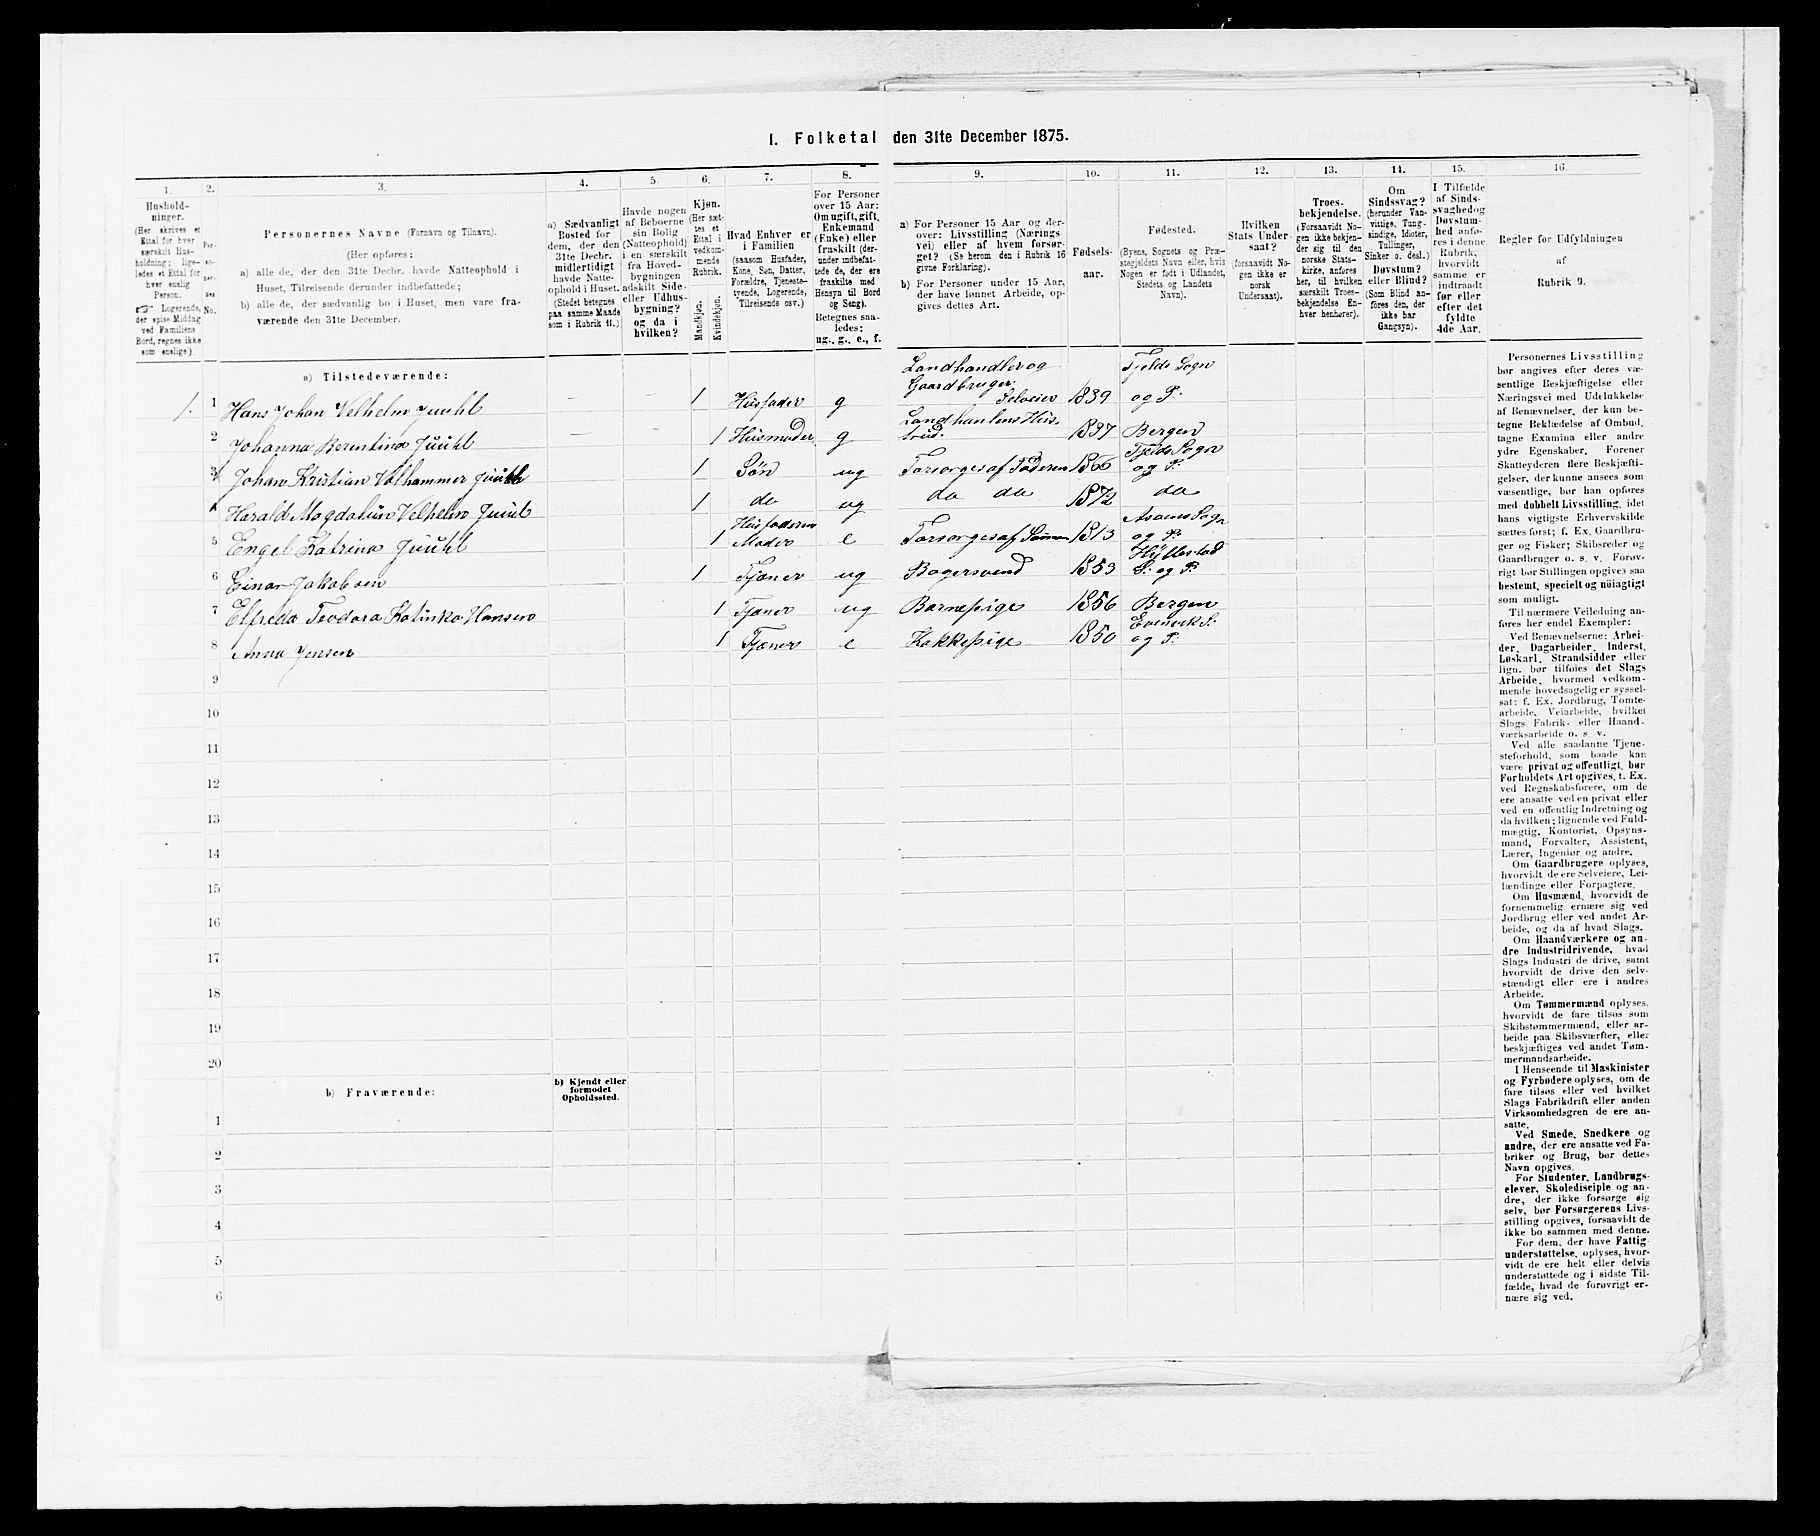 1. Folketal den 31te December 1875.
1.
Hushold-
ninger.
(Her skrives et
Ettal for hver
særskilt Hus-
holdning; lige-
ledes et Ettal for
hver enslig
Person.
☞ Logerende,
der spise Middag
ved Familiens
Bord, regnes ikke
som enslige).
2.
Per-
so-
ner-
nes
No.
3.
Personernes Navne (Fornavn og Tilnavn).
(Her opføres:
a) alle de, der den 31te Decbr. havde Natteophold i
Huset, Tilreisende derunder indbefattede;
b) alle de, der sædvanlig bo i Huset, men vare fra-
værende den 31te December.
4.
a) Sædvanligt
Bosted for
dem, der den
31te Decbr.
midlertidigt
havde Natte-
ophold i Huset.
(Stedet betegnes
paa samme Maade
som i Rubrik 11.)
5.
Havde nogen
af Beboerne
sin Bolig
(Natteophold)
i en særskilt
fra Hoved-
bygningen
adskilt Side-
eller Udhus-
bygning?
og da i
hvilken?
6.
Kjøn.
(Her sæt-
tes et
Ettal i
vedkom-
mende
Rubrik.
Mandkjøn.
Kvindekjøn.
7.
Hvad Enhver er
i Familien
(saasom Husfader,
Kone, Søn, Datter,
Forældre, Tjeneste-
tyende, Logerende,
Tilreisende osv.)
8.
For Personer
over 15 Aar:
Om ugift, gift,
Enkemand
(Enke) eller
fraskilt (der-
under indbefat-
tede de, der ere
fraskilte med
Hensyn til Bord
og Seng).
Betegnes saa-
ledes:
ug., g., e., f.
9.
a) For Personer 15 Aar og der-
over: Livsstilling (Nærings-
vei) eller af hvem forsør-
get? (Se herom den i Rubrik 16
givne Forklaring).
b) For Personer under 15 Aar,
der have lønnet Arbeide, op-
gives dettes Art.
10.
Fødsels-
aar.
11.
Fødested.
(Byens, Sognets og Præ-
stegjeldets Navn eller, hvis
Nogen er født i Udlandet,
Stedets og Landets
Navn).
12.
Hvilken
Stats Under-
saat?
(forsaavidt No-
gen ikke er
norsk
Undersaat).
13.
Troes-
bekjendelse.
(Forsaavidt No-
gen ikke bekjen-
der sig til den
norske Stats-
kirke, anføres
her, til hvilken
særskilt Troes-
bekjendelse En-
hver henhører).
14.
Om
Sindssvag?
(herunder Van-
vittige, Tung-
sindige, Idioter,
Tullinger,
Sinker o. desl.)
Døvstum?
eller Blind?
(Som Blind an-
føres den, der
ikke har
Gangsyn).
15.
I Tilfælde
af Sinds-
svaghed og
Døvstum-
hed anfø-
res i denne
Rubrik,
hvorvidt
samme er
indtraadt
før eller
efter det
fyldte
4de Aar.
16
Regler for Udfyldningen
af
Rubrik 9.
a) Tilstedeværende:
1. 1 Hans Johan Velhelm Juuhl — — 1 Husfader g Landhandler og Gaardbruger Selveier 1839 Fjelds Sogn og P.
2 Johanna Berentina Juuhl — — 1 Husmoder g Landhanlens Hus-
trud. 1837 Bergen
3 Johan Kristian Valhammer Juuhl 1 Søn ug Forsorges af Faderen 1866 Fjelds Sogn og P.
4 Harald Magdalus Velhelm Juuhl 1 do ug do do 1872 do
5 Engel Katrina Juuhl 1 Husfaderens Moder e Forsorges af Sønnen 1813 Sogn og P.
6 Einar Jakobsen 1 Tjener ug Bagersvend 1853 Hyllestad S. og P.
7 Elfreda Teodora Katinka Hansen 1 Tjener ug Barnepige 1856 Bergen
8 Anna Jensen 1 Tjener e Kokkepige 1850 Evenvik S. og P.
9
10
11
12
13
14
15
16
17
18
19
20
b) Fraværende:
b) Kjendt eller
formodet
Opholdssted.
1
2
3
4
5
6
Personernes Livsstilling
bør angives efter deres væ-
sentlige Beskjæftigelse eller
Næringsvei med Udelukkelse
af Benævnelser, der kun be-
tegne Beklædelse af Ombud,
tagne Examina eller andre
ydre Egenskaber. Forener
Skatteyderen flere Beskjæfti-
gelser, der kunne ansees som
væsentlige, bør han opføres
med dobbelt Livsstilling, idet
hans vigtigste Erhvervskilde
sættes først; f. Ex. Gaardbru-
ger og Fisker; Skibsreder og
Gaardbruger o. s. v. Forøv-
rigt bør Stillingen opgives saa
bestemt, specielt og nøiagtigt
som muligt.
Til nærmere Veiledning an-
føres her endel Exempler:
Ved Benævnelserne: Arbei-
der, Dagarbeider, Inderst,
Løskarl, Strandsidder eller
lign. bør tilføies det Slags
Arbeide, hvormed vedkom-
mende hovedsagelig er syssel-
sat; f. Ex. Jordbrug, Tømte-
arbeide, Veiarbeide, hvilket
Slags Fabrik- eller Haand-
værksarbeide o. s. v.
Ved alle saadanne Tjene-
steforhold, som baade kan
være privat og offentligt, bør
Forholdets Art opgives, t. Ex.
ved Regnskabsførere, om de
ere ansatte ved en privat eller
ved en offentlig Indretning og
da hvilken; lignende ved Fuld-
mægtig, Kontorist, Opsyns-
mand, Forvalter, Assistent,
Lærer, Ingeniør og andre.
Om Gaardbrugere oplyses,
hvorvidt de ere Selveiere, Lei-
lændinge eller Forpagtere.
Om Husmænd, hvorvidt de
fornemmelig ernære sig ved
Jordbrug eller ved andet Ar-
beide, og da af hvad Slags.
Om Haandværkere og an-
dre Industridrivende, hvad
Slags Industri de drive, samt
hvorvidt de drive den selv-
stændigt eller ere i andres
Arbeide.
Om Tømmermænd oplyses,
hvorvidt de fare tilsøs som
Skibstømmermænd, eller ar-
beide paa Skibsværfter, eller
beskjæftiges ved andet Tøm-
mermandsarbeide.
I Henseende til Maskinister
og Fyrbødere oplyses, om de
fare tilsøs eller ved hvilket
Slags Fabrikdrift eller anden
Virksomhedsgren de ere an-
satte.
Ved Smede, Snedkere og
andre, der ere ansatte ved Fa-
briker og Brug, bør dettes
Navn opgives.
For Studenter, Landbrugs-
elever, Skoledisciple og an-
dre, der ikke forsørge sig
selv, bør Forsørgerens Livs-
stilling opgives, forsaavidt de
ikke bo sammen med denne.
For dem, der have Fattig-
understøttelse, oplyses, hvor-
vidt de ere helt eller delvis
understøttede og i sidste Til-
fælde, hvad de forøvrigt er-
nære sig ved.